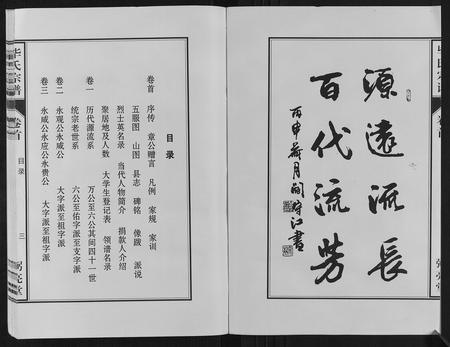 源遠流長
百代流芳
丙申荷月
目录
卷首 序传 章公赠言 凡例 家规 家训
五服图 山图 县志 碑铭 像跋 派说
烈士英名录 当代人物简介 捐款人介绍
聚居地及人数 大学生登记表 领谱名录
卷一 历代源流系 万公至六公其间四十一世
统宗老世系 六公至佑字派至支字派
卷二 永观公永威公 大字派至祖字派
卷三 永咸公永应公永贵公 大字派至祖字派
毕氏宗谱
卷首
目录
三